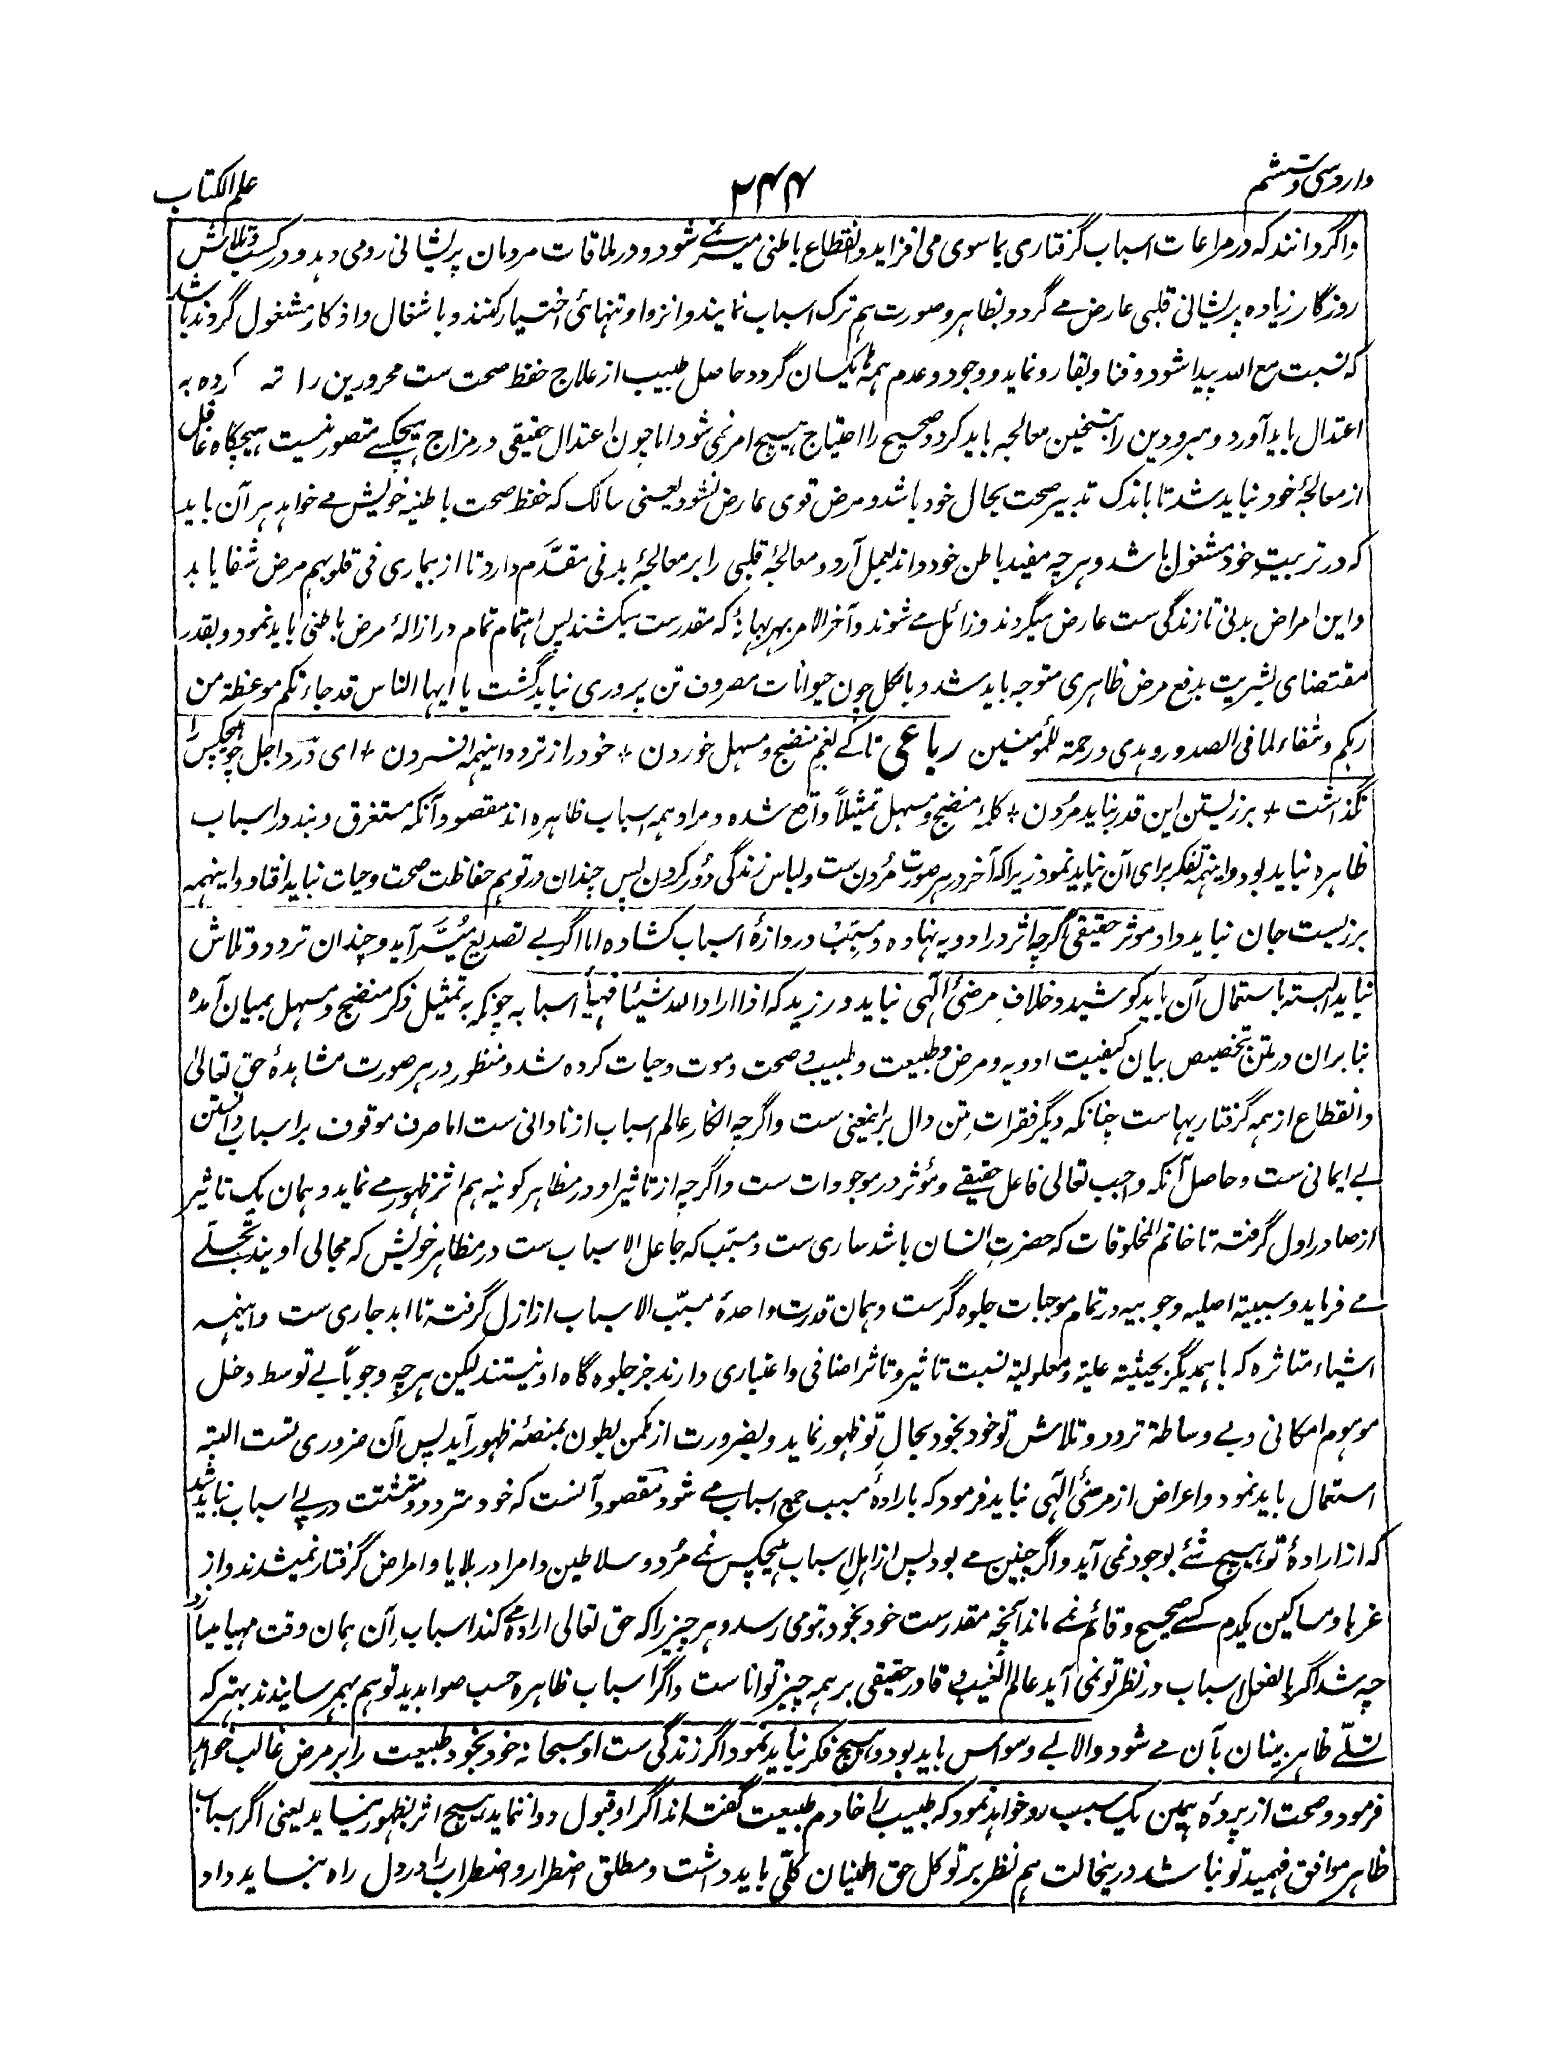 وارد سی و ششم
۲۴۴
علم الکتاب
و اگر دانند که در مراعات اسباب گرفتاری بماسوی می افزاید و انقطاع باطنی میسر نمے شود و در ملاقات مردمان پریشانی رو می دهد و در کسب و تلاش
روزگار زیاده پریشانی قلبی عارض مے گردد بظاهر و صورت هم ترک اسباب نمایند و انزوا و تنهائی اختیار کنند و باشغال و اذکار مشغول گردند باشد
که نسبت مع الله پیدا شود و فنا و بقا رو نماید و وجود و عدم همه یکسان گردد حاصل طبیب از علاج حفظ صحت ست محرورین را کرده به
اعتدال باید آورد و مبرودین را بتسخین معالجه باید کرد و صحیح را احتیاج هیچ امر نمی شود اما چون اعتدال حقیقی در مزاج هیچکسے متصور نیست هیچگاه غافل
از معالجهٔ خود نباید شد تا باندک تدبیر صحت بحال خود باشد و مرض قوی عارض نشود یعنی سالک که حفظ صحت باطنیه خویش مے خواهد هر آن باید
که در تربیت خود مشغول باشد و هر چه مفید باطن خود داند بعمل آرد و معالجهٔ قلبی را بر معالجهٔ بدنی مقدّم دارد تا از بیماری فی قلوبهم مرض شفا یابد
و این امراض بدنی تا زندگی ست عارض میگردند و زائل مے شوند و آخر الامر بهر بهانهٔ که مقدرست میکشند پس اهتمام تمام در ازالهٔ مرض باطنی باید نمود و بقدر
مقتضای بشریت بدفع مرض ظاهری متوجه باید شد و بالکل چون حیوانات مصروف تن پروری نباید گشت یا ایها الناس قد جاءتکم موعظة من
ربکم و شفاء لما فی الصدور و هدی و رحمة للمؤمنین رباعی تا کے بغم منضج و مسهل خوردن + خود را ز تردد اینهمه افسردن + ای درد اجل چو هیچکس را
نگذاشت + بر زیستن این قدر نباید مُردن + کلمهٔ منضج و مسهل تمثیلاً واقع شده و مراد همه اسباب ظاهره اند مقصود آنکه مستغرق و بند در اسباب
ظاهره نباید بود و اینهمه تفکر برای آن نباید نمود زیرا که آخر در هر صورت مُردن ست و لباس زندگی دُور کردن پس چندان در توهم حفاظت صحت و حیات نباید افتاد و اینهمه
بر زیست جان نباید داد موثر حقیقی اگرچه اثر در ادویه نهاده و مسبِّب دروازهٔ اسباب کشاده اما اگر بے تصدیع میسَّر آید و چندان تردد و تلاش
نباید البته باستعمال آن باید کوشید و خلافِ مرضیٔ الٓهی نباید ورزید که اذا اراد الله شیئا فهیأ اسبابه چونکه به تمثیل ذکر منضج و مسهل بمیان آمده
بنابران در متن بتخصیص بیان کیفیت ادویه و مرض و طبیعت و طبیب و صحت و موت و حیات کرده شد و منظور در هر صورت مشاهدهٔ حق تعالیٰ
و انقطاع از همه گرفتاریهاست چنانکه دیگر فقرات متن دال بر اینمعنی ست و اگرچه انکارِ عالم اسباب از نادانی ست اما صرف موقوف بر اسباب دانستن
بے ایمانی ست و حاصل آنکه واجب تعالی فاعل حقیقے و مؤثر در موجودات ست و اگرچه از تاثیر او در مظاهر کونیه هم اثر ظهور مے نماید و همان یک تاثیر
از صادر اول گرفته تا خاتم المخلوقات که حضرتِ انسان باشد ساری ست و مسبّب که جاعل الاسباب ست در مظاهر خویش که مجالی اویند تجلّے
مے فرماید و سببیة اصلیه وجوبیه در تمام موجبات جلوه گرست و همان قدرت واحدهٔ مسبّب الاسباب از ازل گرفته تا ابد جاری ست و اینهمه
اشیاء متاثره که باهمدیگر بحیثیة علیة و معلولیة نسبت تاثیر و تاثر اضافی و اعتباری دارند جز جلوه گاه او نیستند لیکن هر چه وجوباً بے توسط دخل
موهوم امکانی و بے وساطة تردد و تلاش تو خود بخود بحالِ تو ظهور نماید و بضرورت از مکمن بطون بمنصهٔ ظهور آید پس آن ضروری تست البته
استعمال باید نمود و اعراض از مرضیٔ الٓهی نباید فرمود که بارادهٔ مسبب جمع اسباب مے شود مقصود آنست که خود متردد و متشتت در پے اسباب نباید شد
که از ارادهٔ تو هیچ شئے بوجود نمی آید و اگر چنین مے بود پس از اهلِ اسباب هیچکس نمے مُرد و سلاطین و امرا در بلایا و امراض گرفتار نمیشدند و از
غربا و مساکین یکدم کسے صحیح و قائم نمے ماند آنچه مقدرست خود بخود بتو می رسد و هر چیز را که حق تعالی اراده مے کند اسبابِ آن همان وقت مهیا میسازد
چه شد اگر بالفعل اسباب در نظر تو نمی آید عالم الغیب و قادر حقیقی بر همه چیز تواناست و اگر اسباب ظاهره حسب صوابدید تو هم بهم رسانیدند بهتر که
تسلّے ظاهر بینان بآن مے شود و الا بے وسواس باید بود و هیچ فکر نباید نمود اگر زندگی ست او سبحانه خود بخود طبیعت را بر مرض غالب خواهد
فرمود و صحت از پردهٔ همین یک سبب رو خواهد نمود که طبیب را خادم طبیعت گفته اند اگر او قبول دوا ننماید هیچ اثر بظهور نیاید یعنی اگر اسباب
ظاهر موافق فهمید تو نباشد درینحالت هم نظر بر توکل حق اطمینان کلّی باید داشت و مطلق اضطرار و اضطراب را در دل راه نباید داد